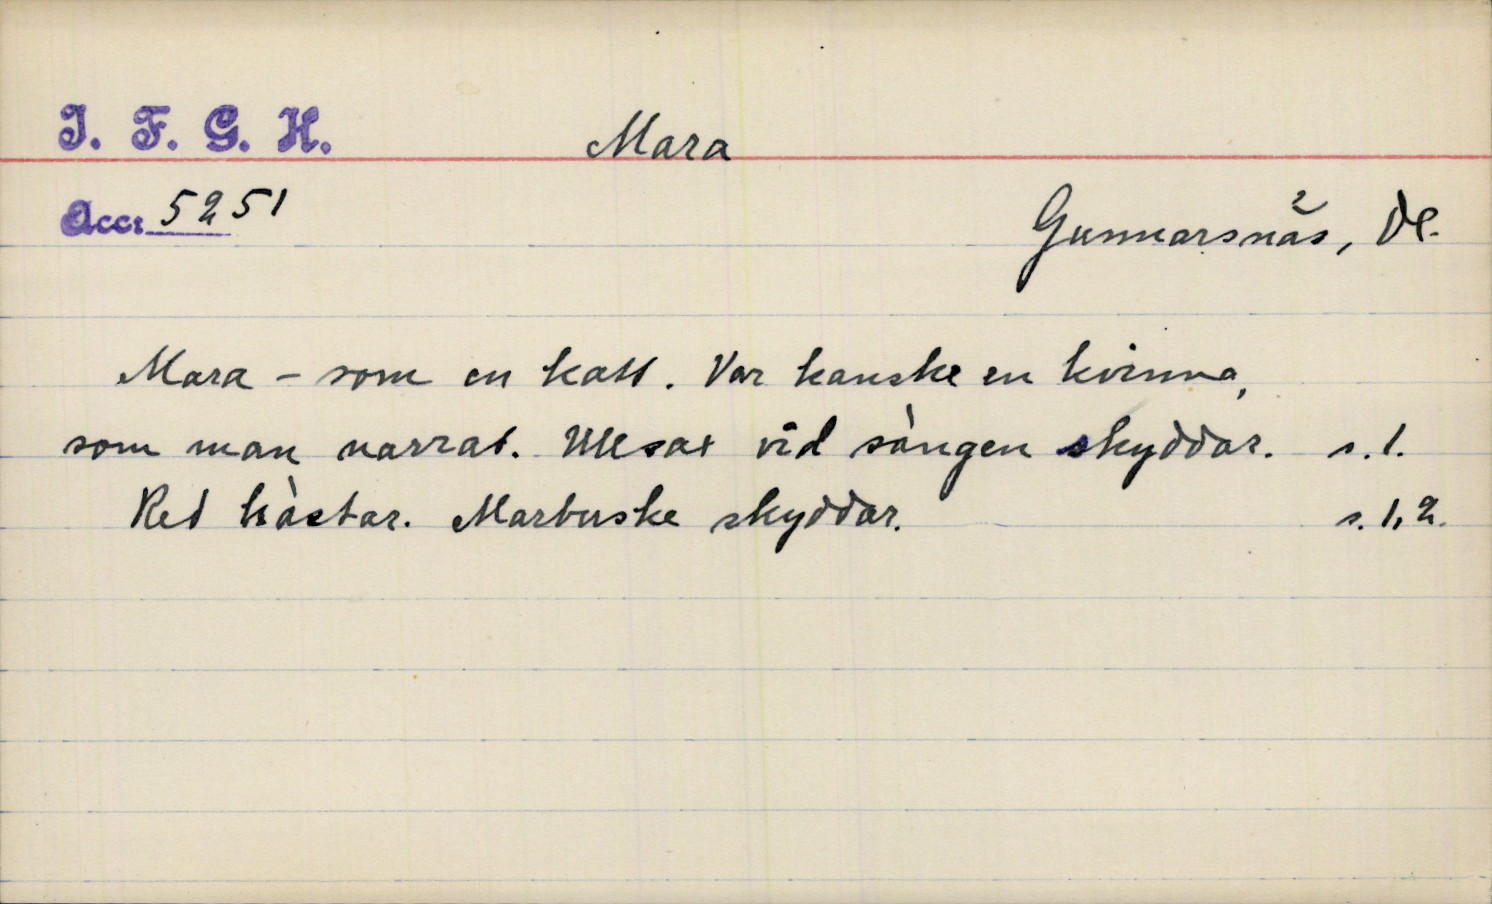 I. F. G. H.
Mara
Acc: 5251
Gunnarsnäs, Dl.
Mara – som en katt. Var kanske en kvinna,
som man narrat. Ullsax vid sängen skyddar. s. 1.
Red hästar. Marbuske skyddar. s. 1, 2.